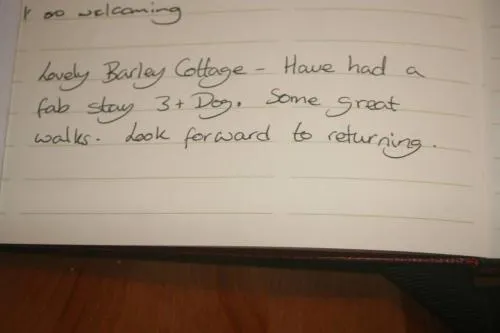 so welcoming
Lovely Barley Cottage - Have had a
fab stay 3 + Dog. Some great
walks. Look forward to returning.